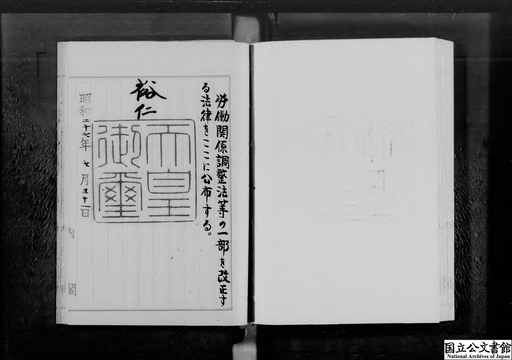 労働関係調整法等の一部を改正す
る法律をここに公布する。
裕仁
天皇
御璽
昭和二十七年七月三十一日
内閣
国立公文書館
National Archives of Japan